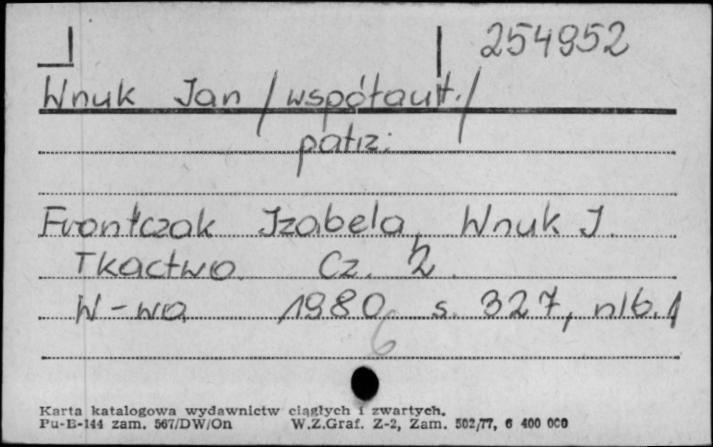 254952
Wnuk Jan /współaut./
patrz:
Frontczak Izabela, Wnuk J.
Tkactwo. Cz. 2.
W-wa 1980 s. 327, nlb. 1
6
Karta katalogowa wydawnictw ciągłych i zwartych.
Pu-B-144 zam. 567/DW/On W.Z.Graf. Z-2, Zam. 502/77, 6 400 000